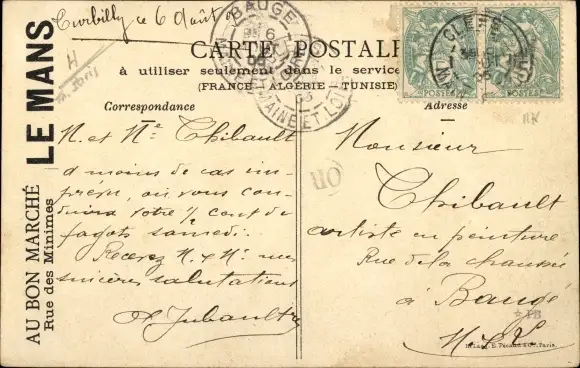 Turbilly ce 6 Août
CARTE POSTALE
à utiliser seulement dans le service
(FRANCE - ALGÉRIE - TUNISIE)
Correspondance
Adresse
AU BON MARCHÉ LE MANS
Rue des Minimes
BAUGÉ
MAINE ET LOIRE
POSTES
POSTES
OR
M. et Me Thibault
à moins de cas im-
prévu, on vous con-
duira votre 1/2 cent de
fagots samedi.
Recevez M. & Me mes
sincères salutations
Monsieur
Thibault
artiste en peinture
Rue de la chaussée
à Baugé
M. & L.
Paris.